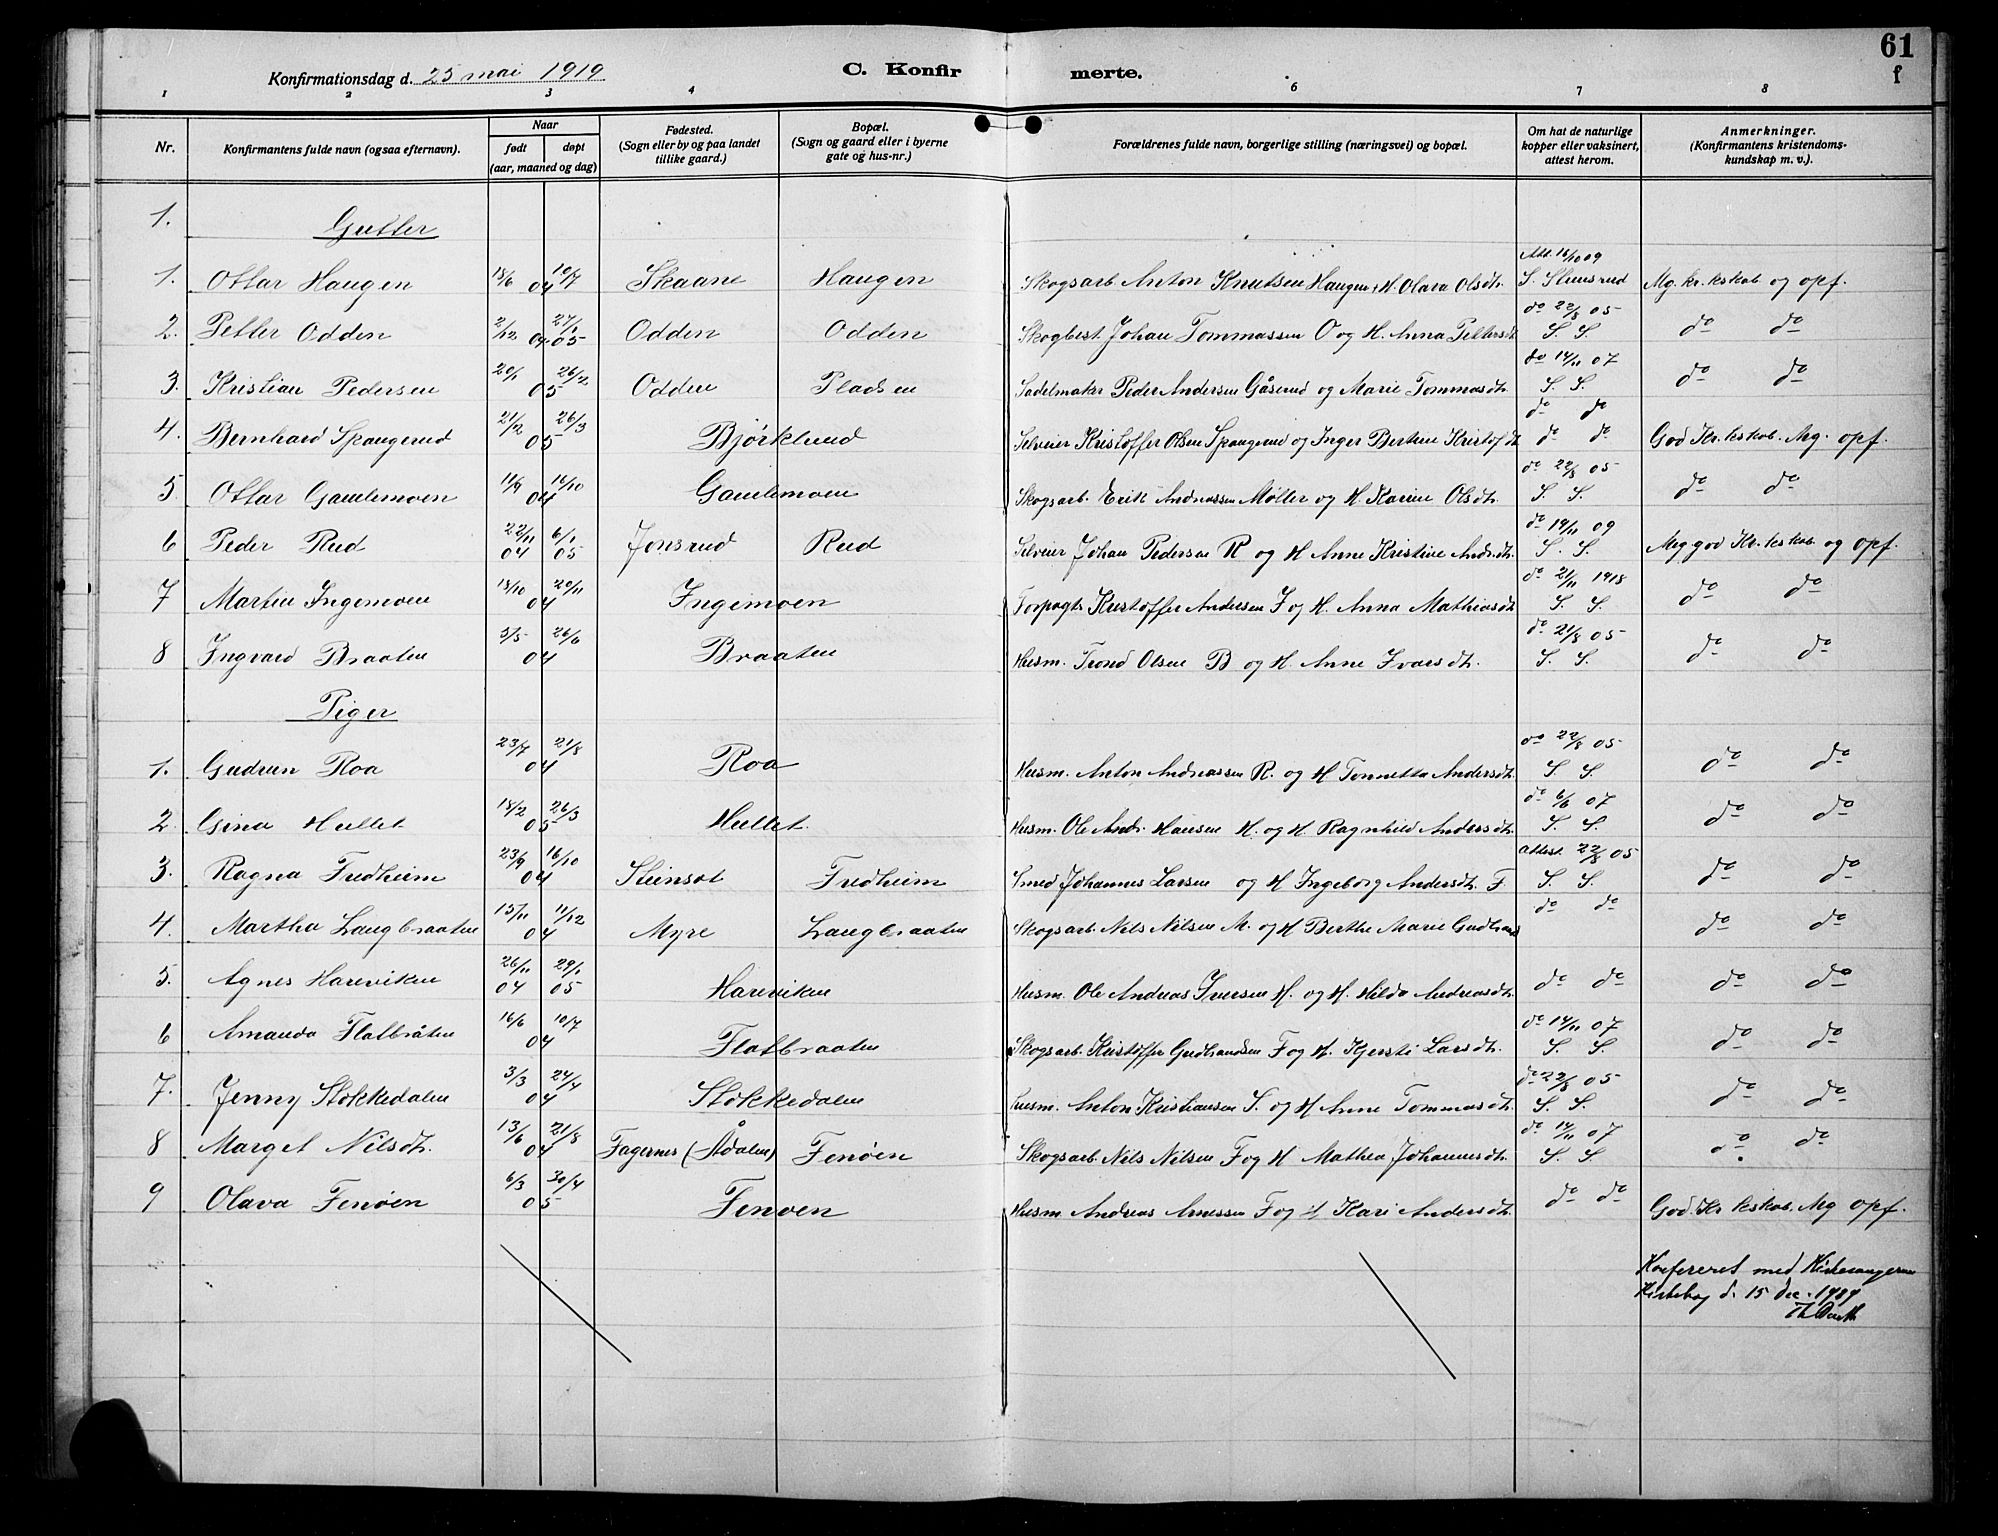 61
f
Konfirmationsdag d. 25 mai 1919 C. Konfirmerte.
1 2 3 4 6 7 8
Nr. Konfirmantens fulde navn (ogsaa efternavn). Naar født døpt (aar, maaned og dag) Fødested. (Sogn eller by og paa landet tillike gaard.) Bopæl. (Sogn og gaard eller i byerne gate og hus-nr.) Forældrenes fulde navn, borgerlige stilling (næringsvei) og bopæl. Om hat de naturlige kopper eller vaksinert, attest herom. Anmerkninger. (Konfirmantens kristendoms-kundskap m. v.).
1. Gutter
1. Ottar Haugen 18/6 10/7 04 Skaane Haugen Skogsarb. Anton Knutsen Haugen, H. Olava Olsdt. Att. 16/10 09 S. Stensrud Mg. kr. kskab og opf.
2. Petter Odden 2/12 04 27/1 05 Odden Odden Skogbest Johan Tommassen O og H. Anna Pettersdt do 22/8 05 S. S. do do
3. Kristian Pedersen 20/1 26/2 05 Odden Pladsen Sadelmaker Peder Andersen Gåserud og Marie Tommasdt. do 14/11 07 S. S. do do
4. Bernhard Spangerud 21/2 26/3 05 Bjørklund Selveier Kristoffer Olsen Spangerud og Inger Berthe Kristofdt. do do do do God Kr. kskab. Mg. opf.
5 Ottar Gamlemoen 11/9 16/10 04 Gamlemoen Skogsarb. Erik Andreassen Møller og H. Karine Olsdt. do 22/8 05 S. S. do do
6 Peder Rud 22/11 04 6/1 05 Jonsrud Rud Selveier Johan Pedersen R og H Anne Kristine Andr.dt. do 14/11 09 S. S. Meg. god Kr. kskab og opf.
7 Martin Ingemoen 18/10 20/11 04 Ingemoen Torpagt. Kristoffer Andersen I og H. Anna Mathiasdt do 21/11 1918 S. S. do do
8 Ingvard Braaten 3/5 26/6 04 Braaten Husm. Trond Olsen B og H. Anne Ivarsdt. do 21/8 05 S. S. do do
Piger
1. Gudrun Roa 23/7 21/8 04 Roa Husm. Anton Andreassen R. og H Tonnetta Andersdt. do 22/8 05 S. S. do do
2 Gina Hullet 18/2 26/3 05 Hullet. Husm. Ole Andr. Hansen H. og H. Ragnhild Andersdt. do 6/6 07 S. S. do do
3. Ragna Fredheim 23/9 16/10 04 Steinset Fredheim Smed Johannes Larsen og H Ingeborg Andersdt. F. attest 22/8 05 S. S. do do
4. Martha Langbraaten 15/11 11/12 04 Myre Langbraaten Skogsarb. Nils Nilsen M. og H Berthe Marie do do do do
5. Agnes Hareviken 26/11 04 29/1 05 Hareviken Husm. Ole Andreas Iversen H. og H. Hilda Andreasdt. do do do do
6 Amanda Flatbråten 16/6 10/7 04 Flatbraaten Skogsarb. Kristoffer Gudbrandsen F og H. Kjersti Larsdt. do 14/11 07 S. S. do do
7. Jenny Stokkedalen 3/3 24/4 04 Stokkedalen Husm. Anton Kristiansen S. og H Anne Tommasdt. do 22/8 05 S. S. do do
8 Marget Nilsdt. 13/6 21/8 04 Fagernes (Ådalen) Fenøen Skogsarb. Nils Nilsen F og H Mathea Johannesdt. do 14/11 07 S. S. do do
9 Olava Fenøen 6/3 30/4 05 Fenøen Husm. Andreas Arnessen F og H Kari Andersdt. do do God. Kr kskab. Mg opf.
Konfereret med Kirkesangeren
Kirkebog d. 15 dec. 1919